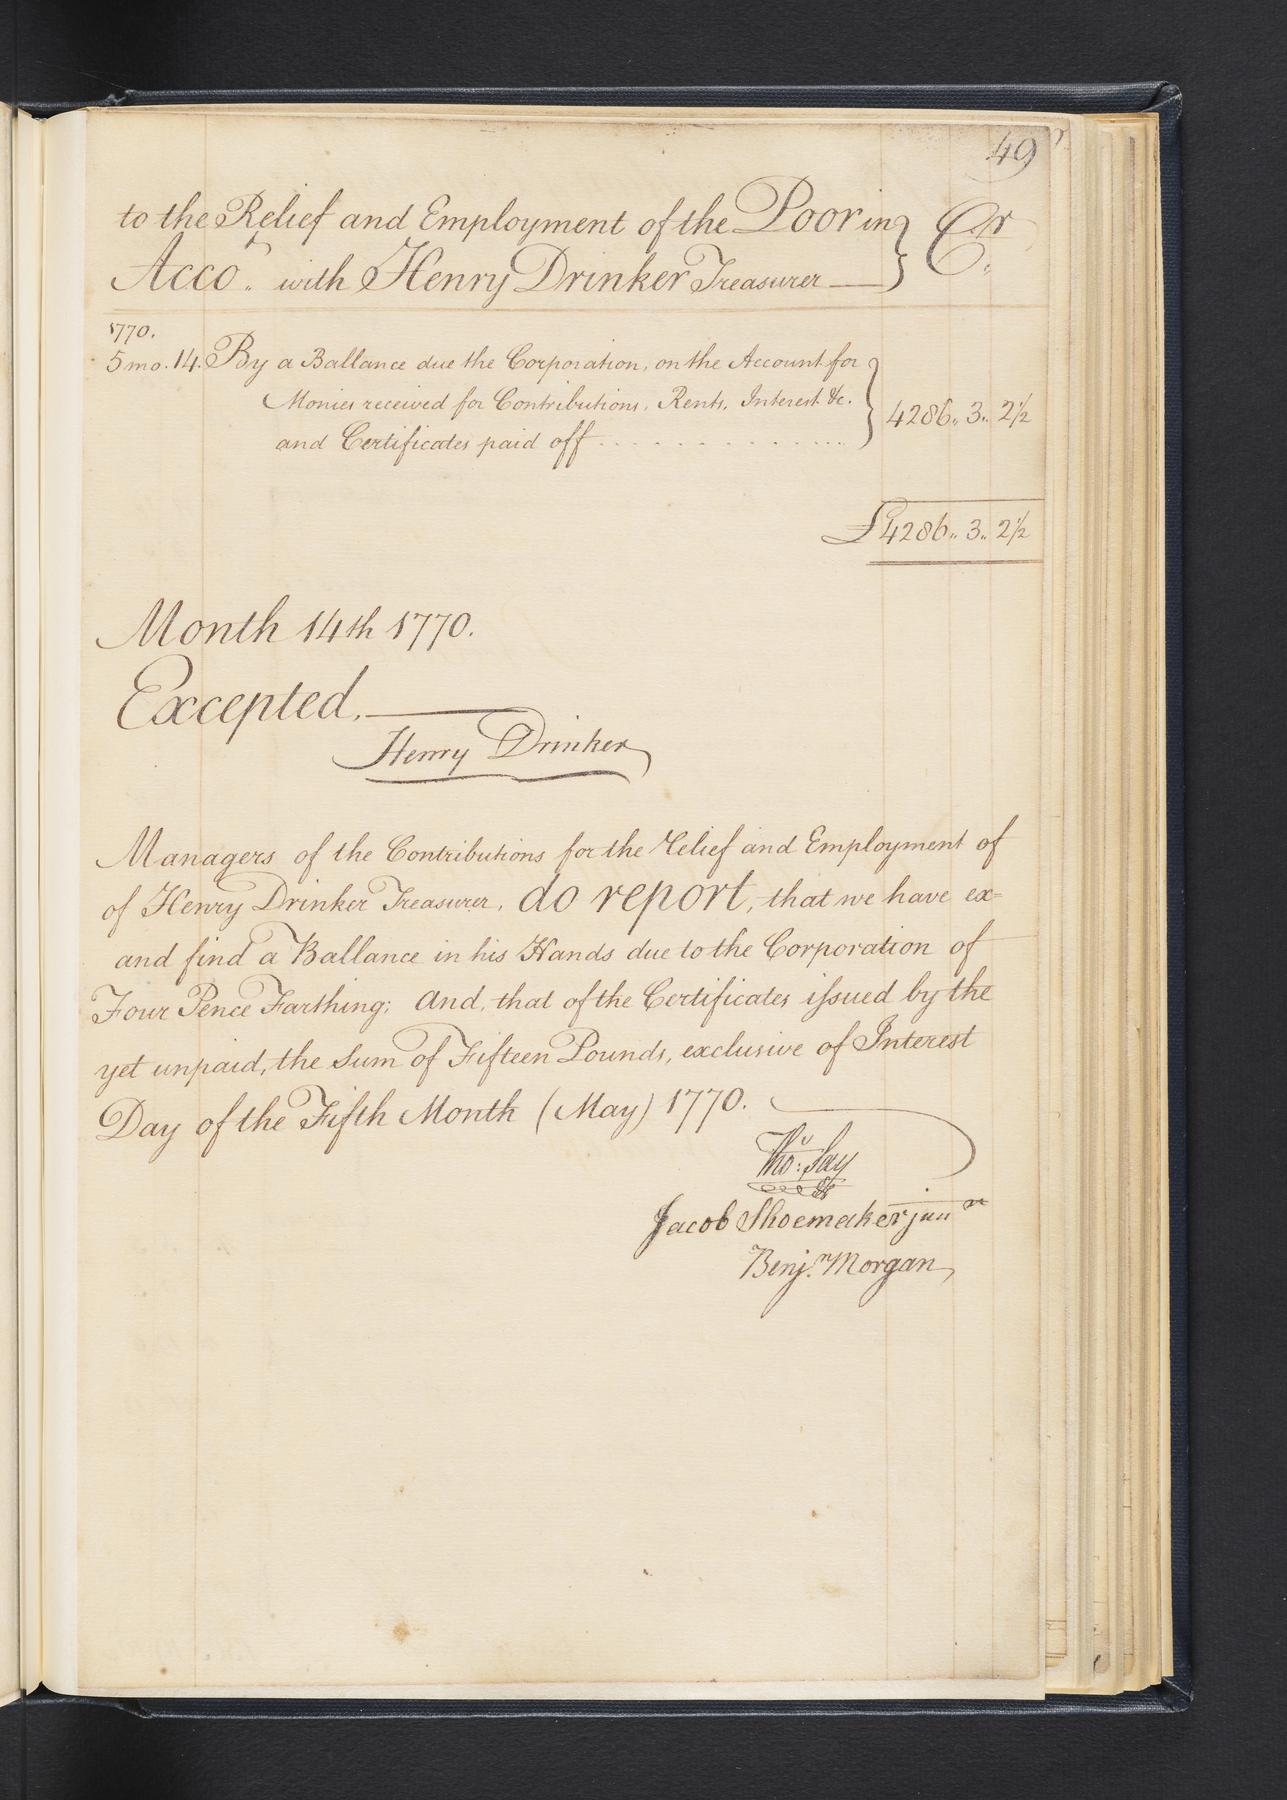 49
to the Relief and Employment of the Poor in } Cr.
Acco.t with Henry Drinker Treasurer
1770.
5 mo. 14. By a Ballance due the Corporation, on the Account for
Monies received for Contributions, Rents, Interest &c.
and Certificates paid off } 4286,, 3,, 2½
£4286,, 3,, 2½
Month 14th 1770.
Excepted.
Henry Drinker
Managers of the Contributions for the Relief and Employment of
of Henry Drinker Treasurer, do report, that we have ex=
and find a Ballance in his Hands due to the Corporation of
Four Pence Farthing; And, that of the Certificates issued by the
yet unpaid, the Sum of Fifteen Pounds, exclusive of Interest
Day of the Fifth Month (May) 1770.
Tho.s Say
Jacob Shoemaker junr
Benj.n Morgan